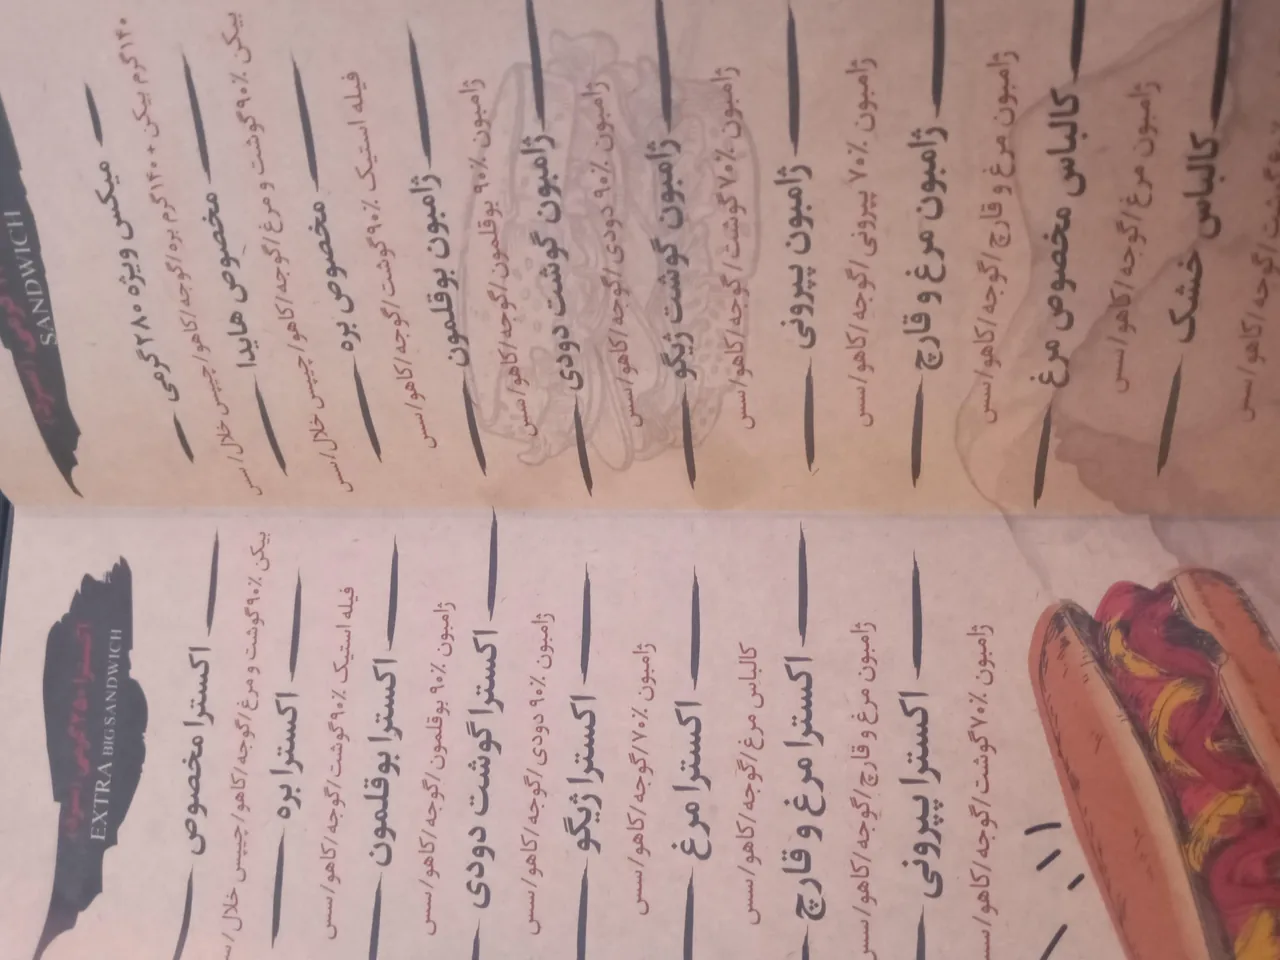 SANDWICH
میکس ویژه ۲۸۰ گرمی
۱۴۰گرم بیکن+۱۴۰گرم بره/گوجه/کاهو/چیپس خلال/سس
مخصوص هایدا
بیکن ۹۰٪ گوشت و مرغ/گوجه/کاهو/چیپس خلال/سس
مخصوص بره
فیله استیک ۹۰٪ گوشت/گوجه/کاهو/سس
ژامبون بوقلمون
ژامبون ۹۰٪ بوقلمون/گوجه/کاهو/سس
ژامبون گوشت دودی
ژامبون ۹۰٪ دودی/گوجه/کاهو/سس
ژامبون گوشت ژیگو
ژامبون ۷۰٪ گوشت/گوجه/کاهو/سس
ژامبون پپرونی
ژامبون ۷۰٪ پپرونی/گوجه/کاهو/سس
ژامبون مرغ و قارچ
ژامبون مرغ و قارچ/گوجه/کاهو/سس
کالباس مخصوص مرغ
ژامبون مرغ/گوجه/کاهو/سس
کالباس خشک
گوجه/کاهو/سس
اکسترا ۲۵۰ گرمی
EXTRA BIG SANDWICH
اکسترا مخصوص
بیکن ۹۰٪ گوشت و مرغ/گوجه/کاهو/چیپس خلال/س
اکسترا بره
فیله استیک ۹۰٪ گوشت/گوجه/کاهو/سس
اکسترا بوقلمون
ژامبون ۹۰٪ بوقلمون/گوجه/کاهو/سس
اکسترا گوشت دودی
ژامبون ۹۰٪ دودی/گوجه/کاهو/سس
اکسترا ژیگو
ژامبون ۷۰٪/گوجه/کاهو/سس
اکسترا مرغ
کالباس مرغ/گوجه/کاهو/سس
اکسترا مرغ و قارچ
ژامبون مرغ و قارچ/گوجه/کاهو/سس
اکسترا پپرونی
ژامبون ۷۰٪ گوشت/گوجه/کاهو/سس